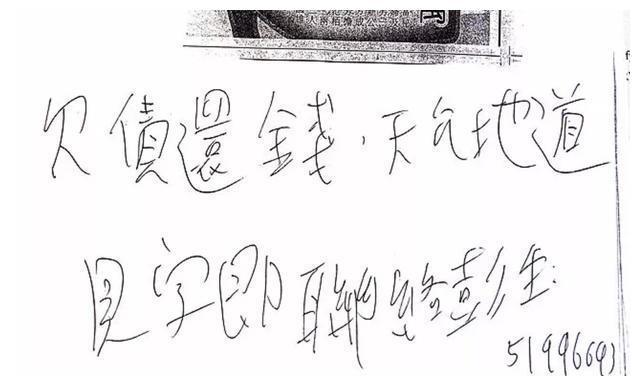 欠債還錢，天公地道
見字即聯絡彭生：
51996693